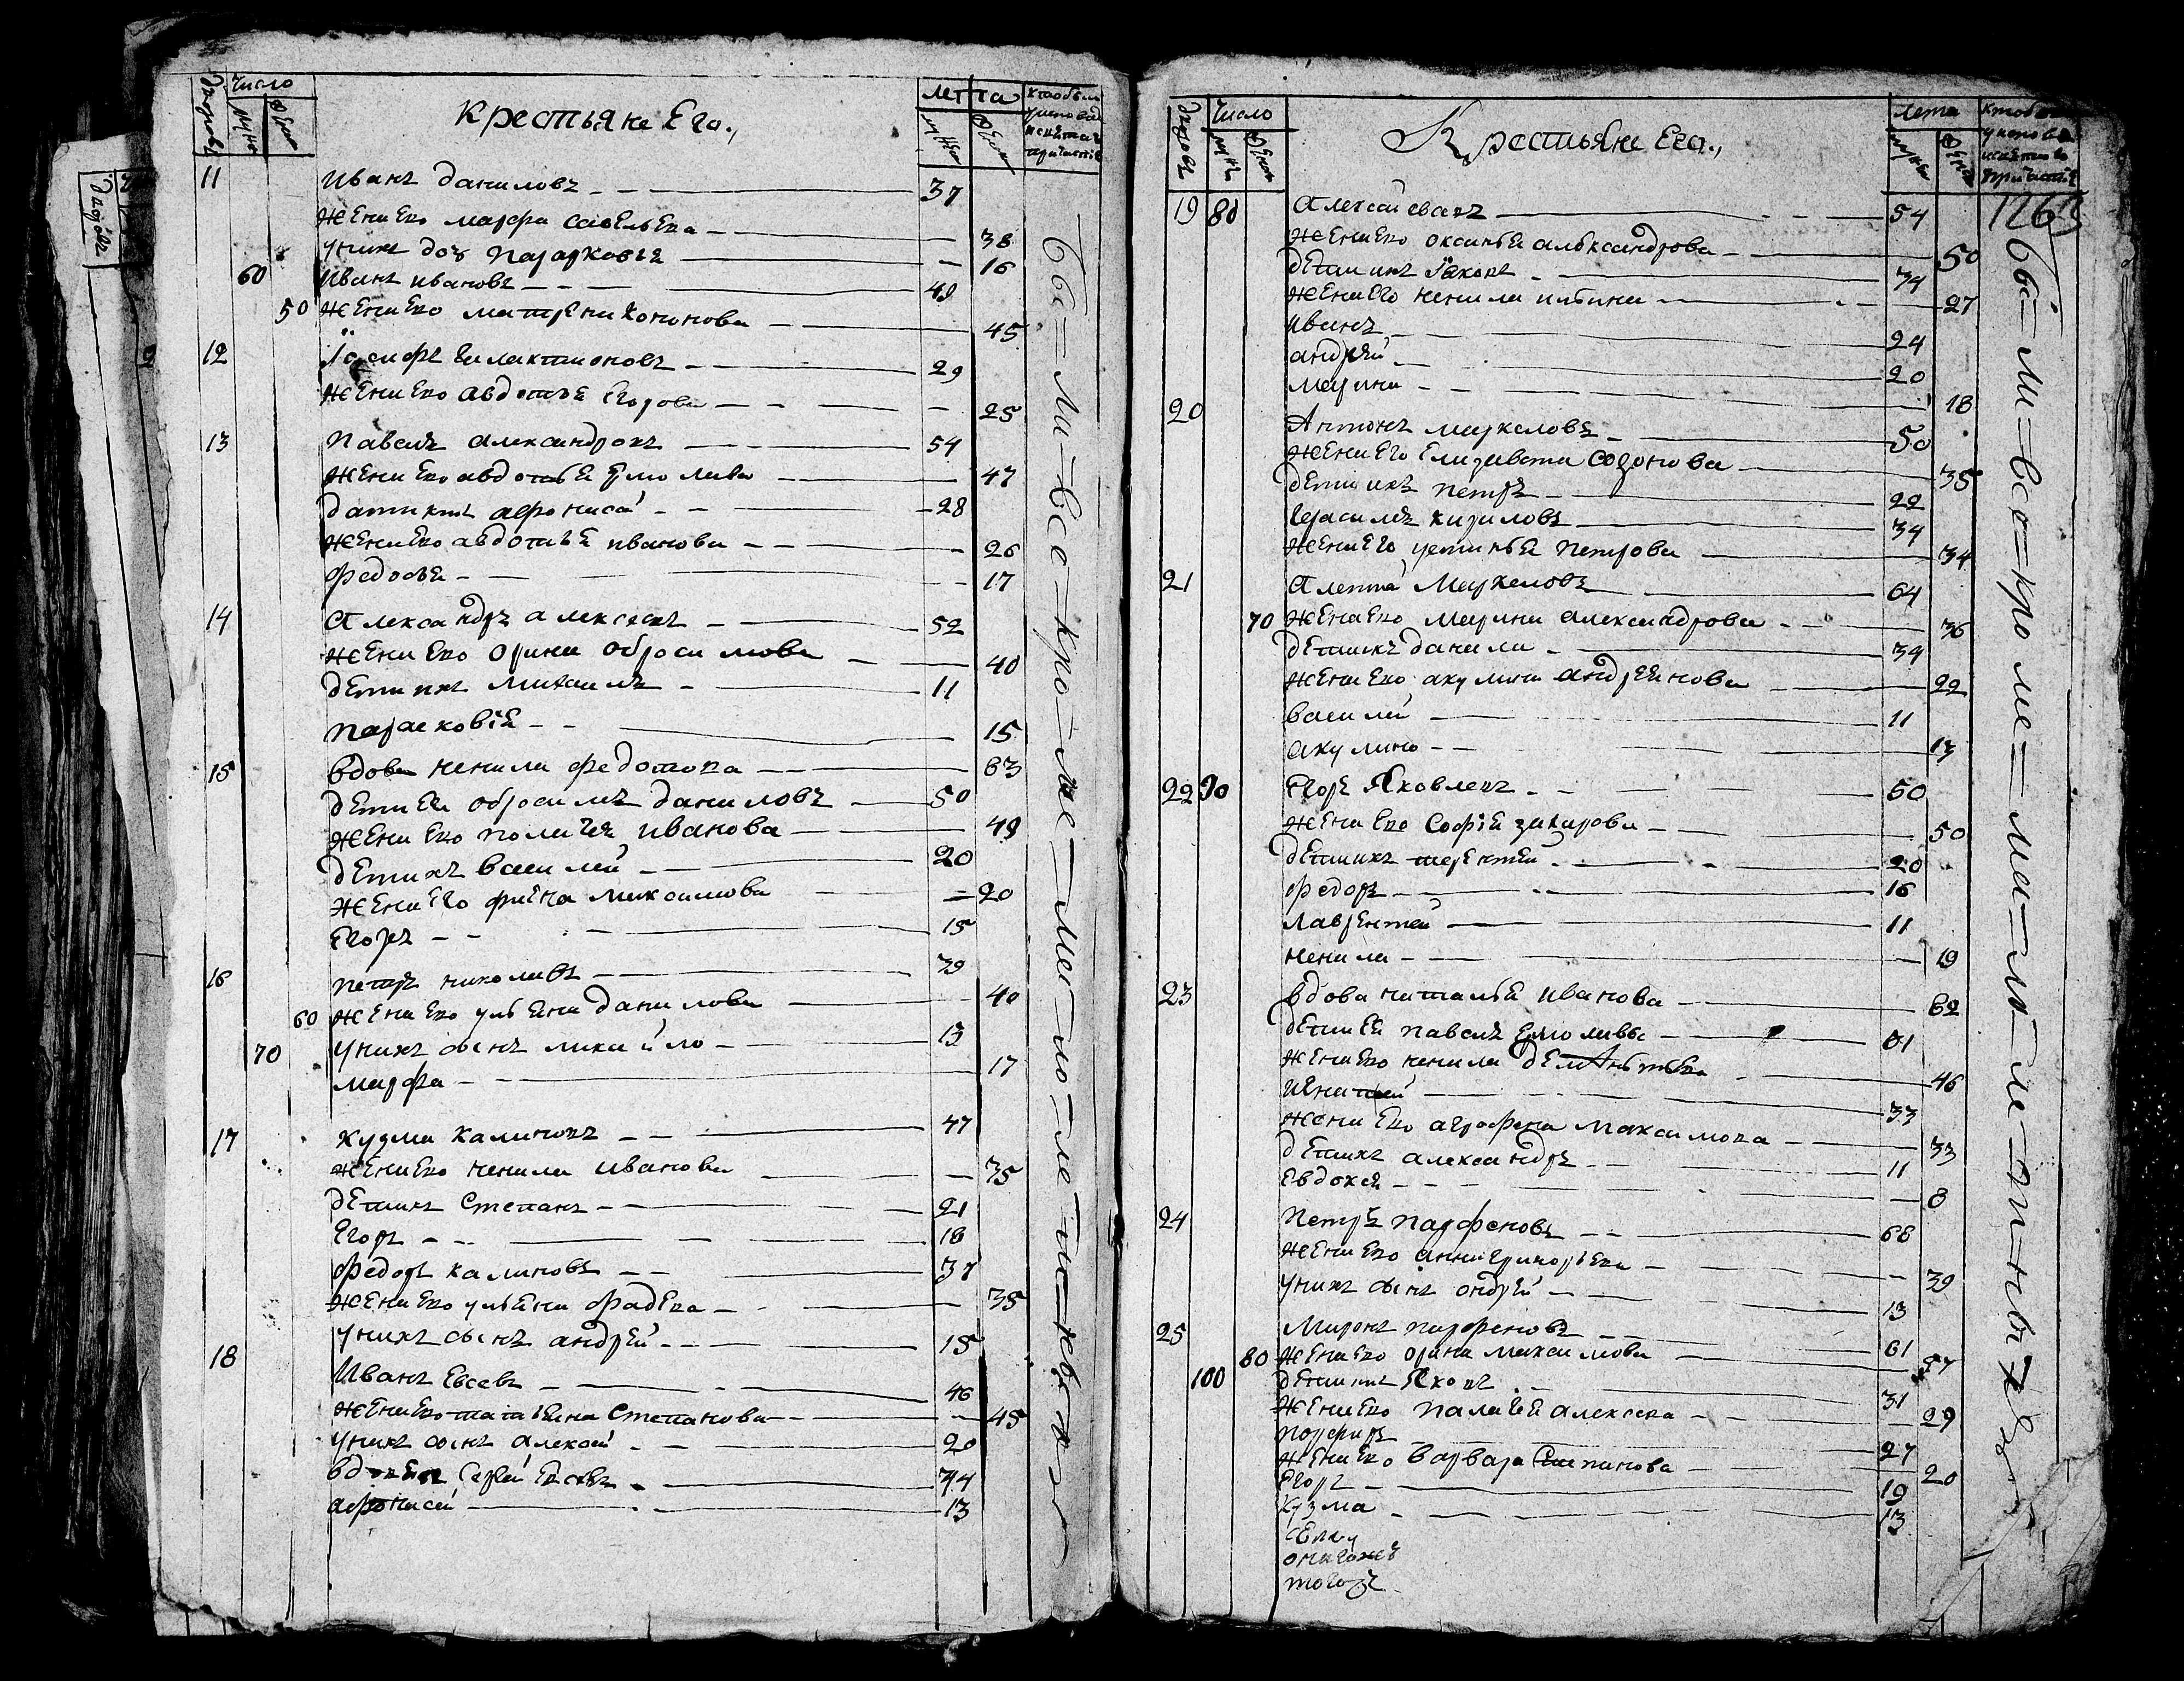 дворовъ число мужес женск
Крестьяне Его.,
лета мужес женск
11 иванъ даниловъ 37
жена Ево марфа савельева 38
у нихъ доч парасковья 16
60 иванъ ивановъ 49
50 жена Ево матрена кононова 45
12 Iосифъ галактионовъ 29
жена Ево авдотья Егорова 25
13 павелъ александровъ 54
жена Ево авдотья Ермолава 47
дети ихъ афонасей 28
жена Ево авдотья иванова 26
федосья 17
14 александръ алексеевъ 52
жена Ево орина обросимова 40
дети ихъ михаилъ 11
парасковiя 15
15 вдова ненила федотова 63
дети Ея обросимъ даниловъ 50
жена Ево полагея иванова 49
дети ихъ василей 20
жена Его фиёна максимова 20
Егоръ 15
16 петръ николавъ 39
60 жена Ево ульяна данилова 40
70 у нихъ сынъ михайло 13
марфа 17
17 кузма калиновъ 47
жена Ево ненила иванова 35
дети ихъ Степанъ 21
Егоръ 18
федоръ калиновъ 37
жена Ево ульяна фадеева 35
у нихъ сынъ андрей 15
18 Иванъ Евсевъ 46
жена Ево татьяна Степанова 45
у нихъ сынъ алексей 20
вдовецъ Сергей Евсевъ 44
афонасей 13
бы=ли=все=кро=ме=ма=ло=ле=т=ныхъ
дворовъ Число мужес женск
Крестьяне Его.,
Лета мужес женск
1263
19 80 алексей евавъ 54
жена Ево оксинья александрова 50
дети ихъ Яковъ 34
жена Его ненила ильина 27
иванъ 24
андрей 20
марина 18
20 Антонъ маркеловъ 50
жена Его Елизавета Созонова 35
дети ихъ петръ 22
герасимъ кириловъ 34
жена Его устинья петрова 34
21 Маркеловъ 64
70 жена Ево марина александрова 36
дети ихъ данила 34
жена Ево акулина андреянова 22
василей 11
акулина 13
22 90 Егоръ Яковлевъ 60
жена Ево Софiя захарова 50
дети ихъ терентей 20
федоръ 16
лаврентей 11
ненила 19
23 вдова наталья иванова 62
дети Ея павелъ Ермолавъ 61
жена Ево ненила дементьева 46
игнатей 33
жена Ево аграфена максимова 33
дети ихъ александръ 11
Евдокея 8
24 Петръ парфеновъ 68
жена Ево анна григорьева 39
у нихъ сынъ ондрей 13
25 Миронъ парфеновъ 61
80 жена Ево орина максимова 57
100 дети ихъ Яковъ 31
жена Ево палагея алексеева 29
порфиръ 27
жена Ево варвара Степанова 20
Егоръ 19
Кузма 13
бы=ли=все=кро=ме=ма=ло=ле=т=ныхъ